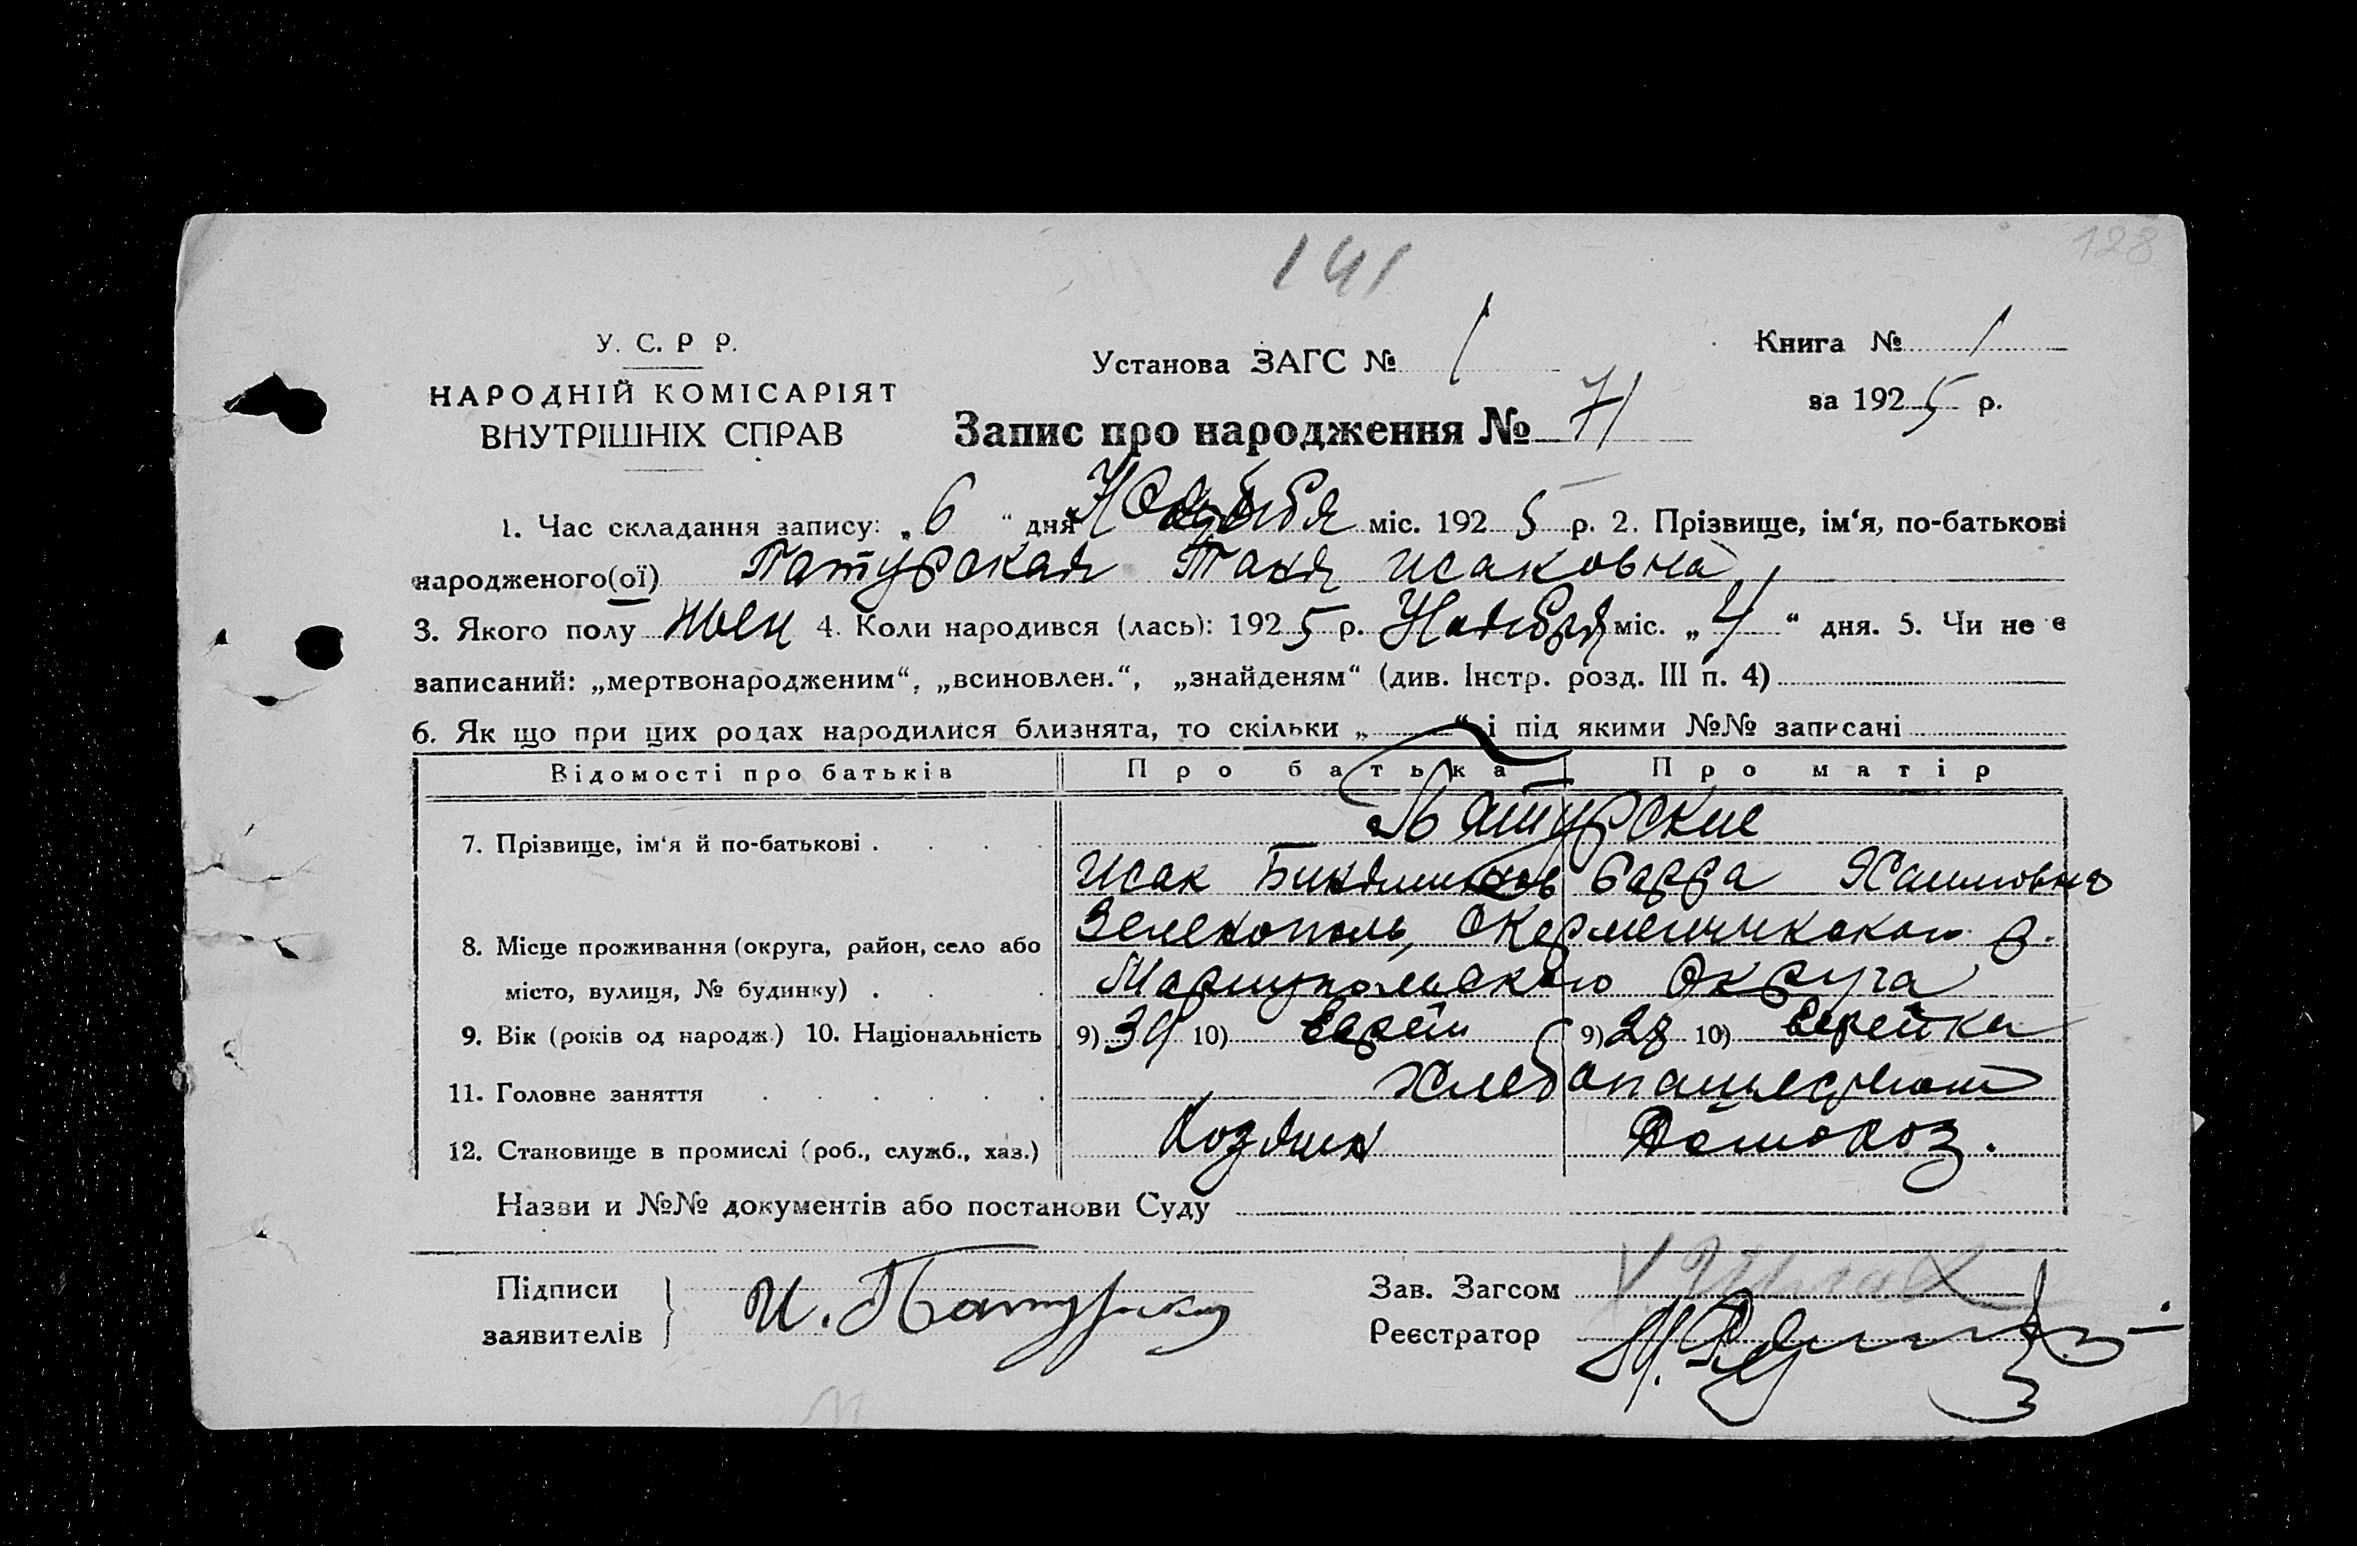 128
141
У. С. Р Р.
НАРОДНІЙ КОМІСАРІЯТ
ВНУТРІШНІХ СПРАВ
Установа ЗАГС № 1
Книга № 1
за 1925 р.
Запис про народження № 71
1. Час складання запису: „6“ дня Ноября міс. 1925 р. 2. Прізвище, ім‘я, по-батькові
народженого(ої) Патурская Таня Исаковна
3. Якого полу жен 4. Коли народився (лась): 1925 р. Ноября міс. „4“ дня. 5. Чи не є
записаний: „мертвонародженим“, „всиновлен.“, „знайденям“ (див. Інстр. розд. III п. 4)
6. Як що при цих родах народилися близнята, то скільки „ “ і під якими №№ записані
Відомості про батьків Про батька Про матір
Патурские
7. Прізвище, ім‘я й по-батькові
Исак Сарра
8. Місце проживання (округа, район, село або Зеленополь,
місто, вулиця, № будинку) Мариупольского Округа
9. Вік (років од народж.) 10. Національність 9) 34 10) Еврей 9) 28 10) Еврейка
11. Головне заняття
12. Становище в промислі (роб., служб., хаз.) Хозяин Домохоз.
Назви и №№ документів або постанови Суду
Підписи
заявителів
И. Патурский
Зав. Загсом
Реєстратор